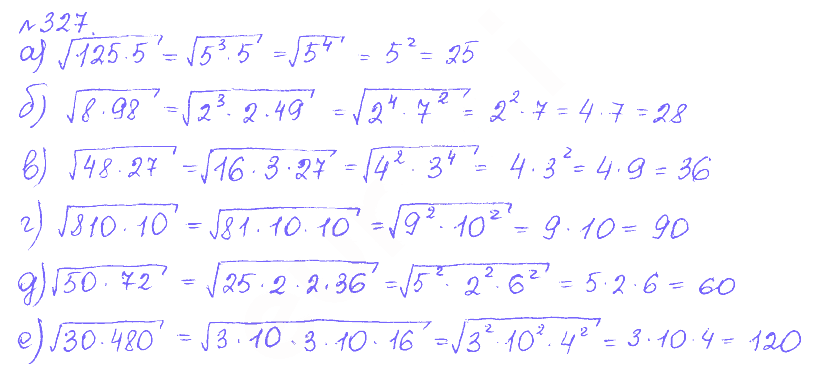 №327.
а) √(125·5) = √(5³·5) = √(5⁴) = 5² = 25
б) √(8·98) = √(2³·2·49) = √(2⁴·7²) = 2²·7 = 4·7 = 28
в) √(48·27) = √(16·3·27) = √(4²·3⁴) = 4·3² = 4·9 = 36
г) √(810·10) = √(81·10·10) = √(9²·10²) = 9·10 = 90
д) √(50·72) = √(25·2·2·36) = √(5²·2²·6²) = 5·2·6 = 60
е) √(30·480) = √(3·10·3·10·16) = √(3²·10²·4²) = 3·10·4 = 120